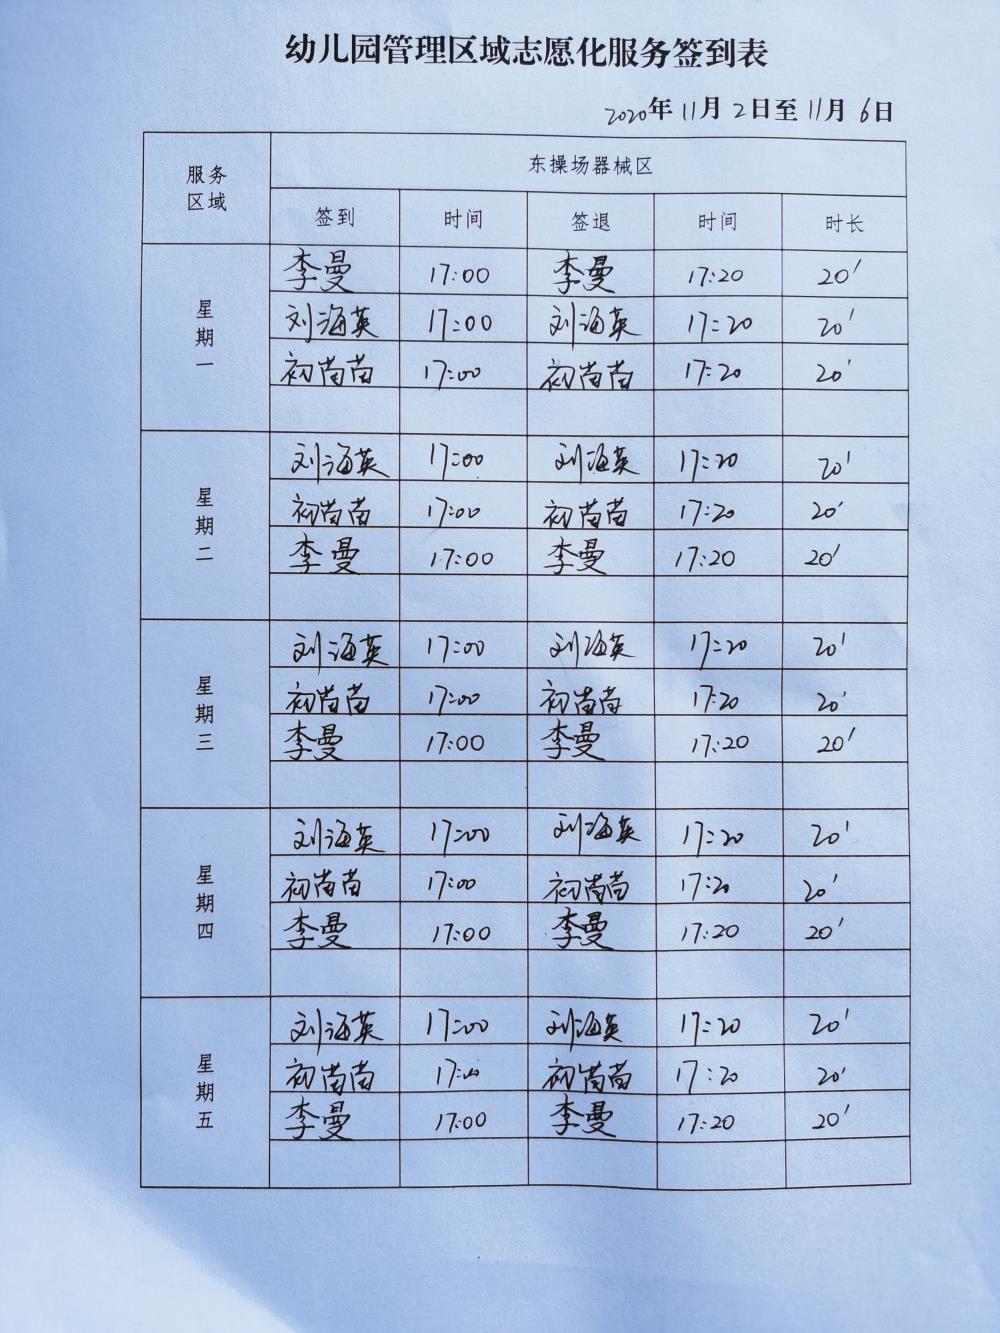 幼儿园管理区域志愿化服务签到表
2020年 11月 2日至 11月 6日
服务区域 东操场器械区
签到 时间 签退 时间 时长
星期一
李曼 17:00 李曼 17:20 20'
刘海英 17:00 刘海英 17:20 20'
初苗苗 17:00 初苗苗 17:20 20'
星期二
刘海英 17:00 刘海英 17:20 20'
初苗苗 17:00 初苗苗 17:20 20'
李曼 17:00 李曼 17:20 20'
星期三
刘海英 17:00 刘海英 17:20 20'
初苗苗 17:00 初苗苗 17:20 20'
李曼 17:00 李曼 17:20 20'
星期四
刘海英 17:00 刘海英 17:20 20'
初苗苗 17:00 初苗苗 17:20 20'
李曼 17:00 李曼 17:20 20'
星期五
刘海英 17:00 刘海英 17:20 20'
初苗苗 17:00 初苗苗 17:20 20'
李曼 17:00 李曼 17:20 20'